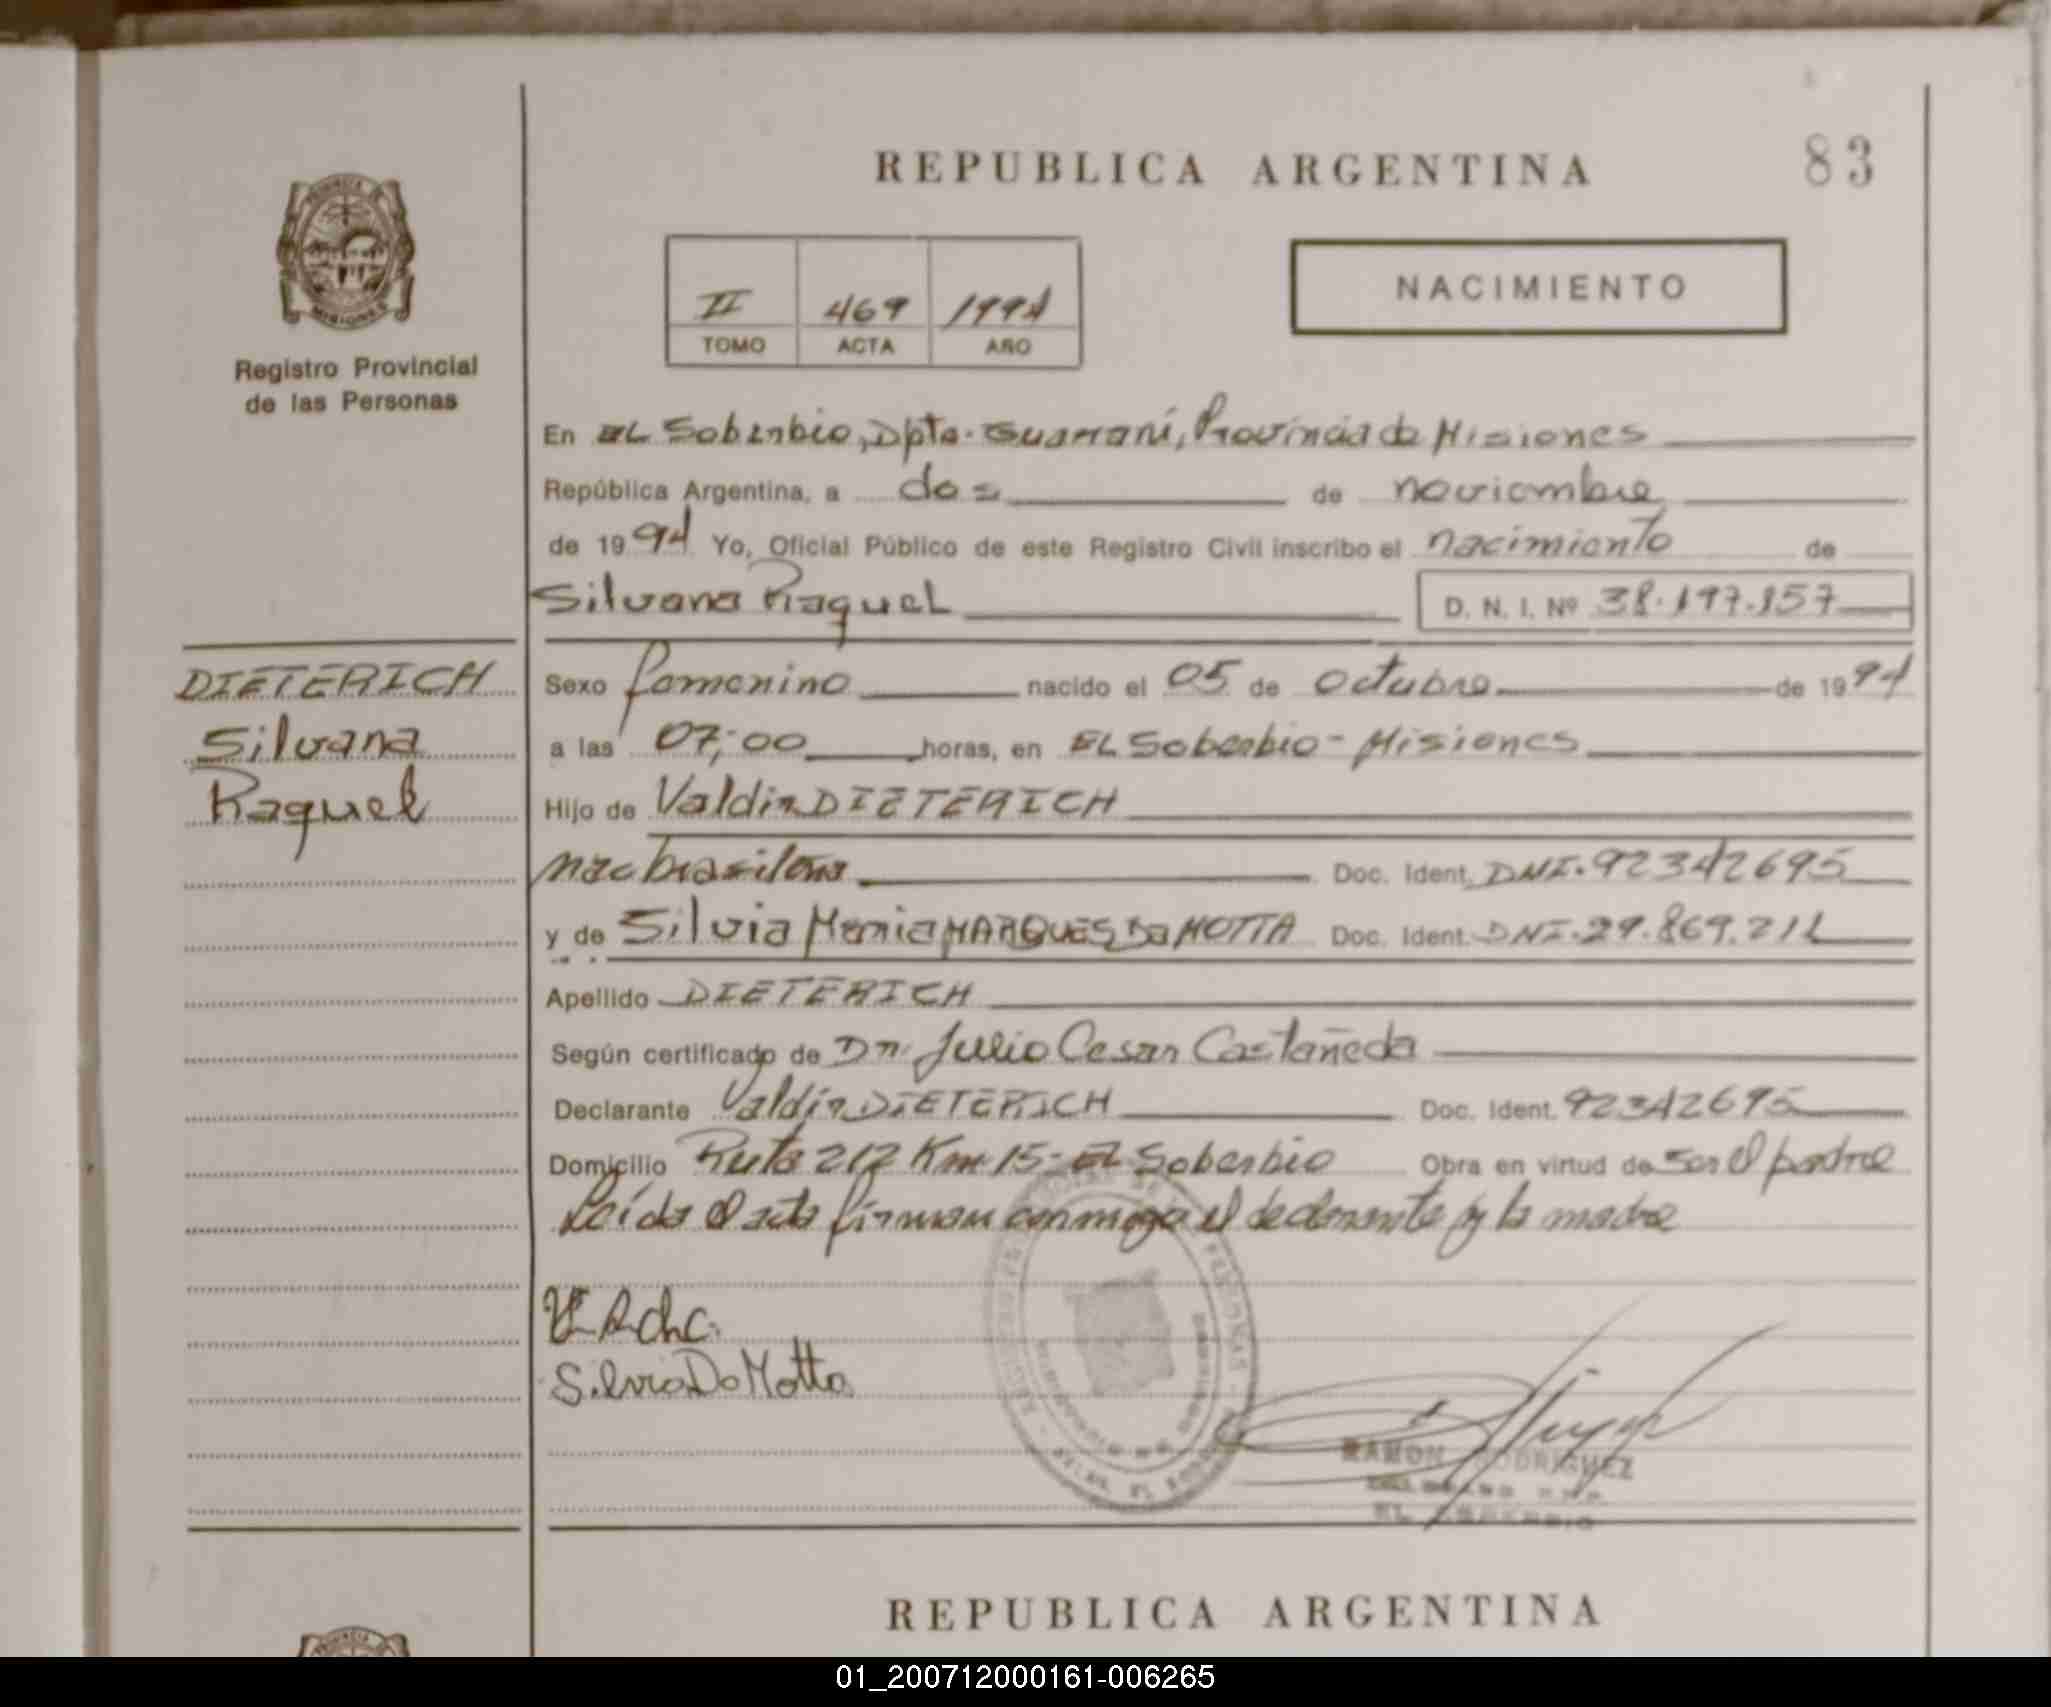 REPUBLICA ARGENTINA
83
II 469 1994
TOMO ACTA AÑO
NACIMIENTO
MISIONES
Registro Provincial
de las Personas
En EL Soberbio, Dpto. Guaraní, Provincia de Misiones
República Argentina, a dos de noviembre
de 1994 Yo, Oficial Público de este Registro Civil inscribo el nacimiento de
Silvana Raquel D. N. I. Nº 38.197.157
DIETERICH
Silvana
Raquel
Sexo femenino nacido el 05 de octubre de 1994
a las 07:00 horas, en EL Soberbio - Misiones
Hijo de Valdir DIETERICH
nac brasileña Doc. Ident. DNI. 92342695
y de Silvia MARQUES Da MOTTA Doc. Ident. DNI. 29.869.211
Apellido DIETERICH
Según certificado de Dr. Julio Cesar Castañeda
Declarante Valdir DIETERICH Doc. Ident. 92342695
Domicilio Ruta 212 Km 15 - EL Soberbio Obra en virtud de ser el padre
Leída el acta firman conmigo el declarante y la madre
Silvia Da Motta
RAMON RODRIGUEZ
EL SOBERBIO
REPUBLICA ARGENTINA
01_200712000161-006265